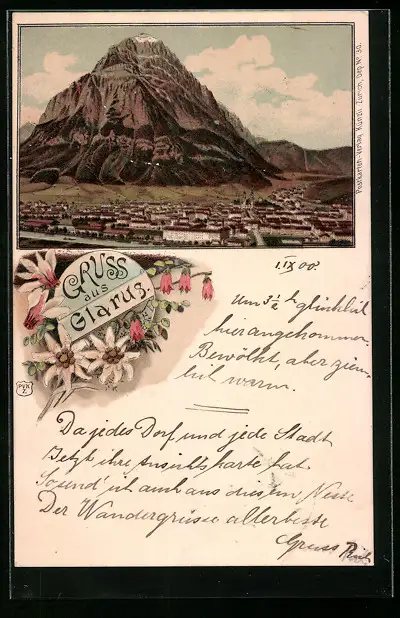 Postkarten-Verlag Künzli, Zürich, Dep. No. 90.
GRUSS
aus
Glarus.
PVKZ
1.IX 00.
Um 3½ h glücklich
hier angekommen.
Bewölkt, aber ziem-
lich warm.
Da jedes Dorf und jede Stadt
Jetzt ihre Ansichtskarte hat
So send' ich auch aus diesem Neste
Der Wandergrüsse allerbeste
Gruss